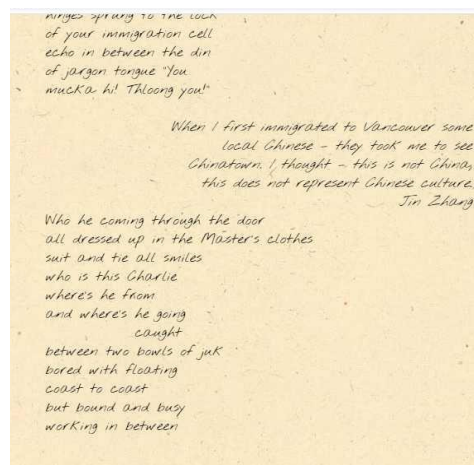 hinges sprung to the lock
of your immigration cell
echo in between the din
of jargon tongue "You
mucka hi! Thloong you!"
When I first immigrated to Vancouver some
local Chinese – they took me to see
Chinatown. I thought – this is not China,
this does not represent Chinese culture.
Jin Zhang
Who he coming through the door
all dressed up in the Master's clothes
suit and tie all smiles
who is this Charlie
where's he from
and where's he going
caught
between two bowls of juk
bored with floating
coast to coast
but bound and busy
working in between